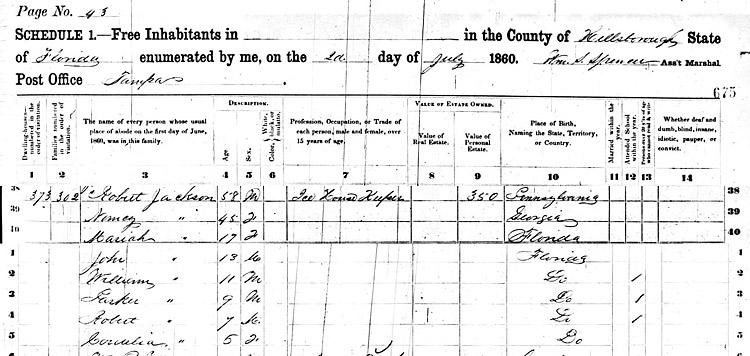 Page No. 43
SCHEDULE 1.—Free Inhabitants in in the County of Hillsborough State
of Florida enumerated by me, on the 2d day of July 1860. Wm. S. Spencer Ass't Marshal.
Post Office Tampa
675
Dwelling-houses—numbered in the order of visitation.
Families numbered in the order of visitation.
The name of every person whose usual place of abode on the first day of June, 1860, was in this family.
DESCRIPTION.
Age
Sex.
Color, {White, black, or mulatto.
Profession, Occupation, or Trade of each person, male and female, over 15 years of age.
VALUE OF ESTATE OWNED.
Value of Real Estate.
Value of Personal Estate.
Place of Birth, Naming the State, Territory, or Country.
Married within the year.
Attended School within the year.
Whether deaf and dumb, blind, insane, idiotic, pauper, or convict.
1 2 3 4 5 6 7 8 9 10 11 12 13 14
38 373 302 Robert Jackson 58 M Ice House Keeper 350 Pennsylvania 38
39 Nancy " 45 F Georgia 39
40 Mariah " 17 F Florida 40
1 John " 13 M Florida 1
2 William " 11 M Do 1 2
3 Parker " 9 M Do 1 3
4 Robert " 7 M Do 1 4
5 Cornelia " 5 F Do 5